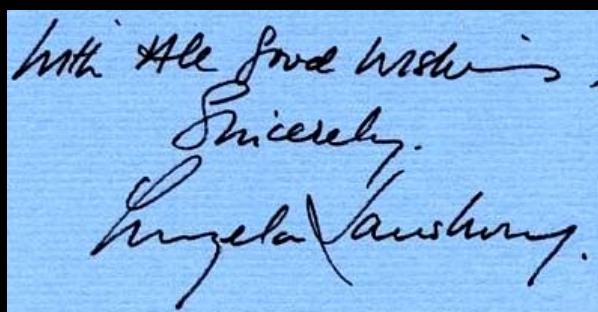 With All Good Wishes,
Sincerely.
Angela Lansbury.